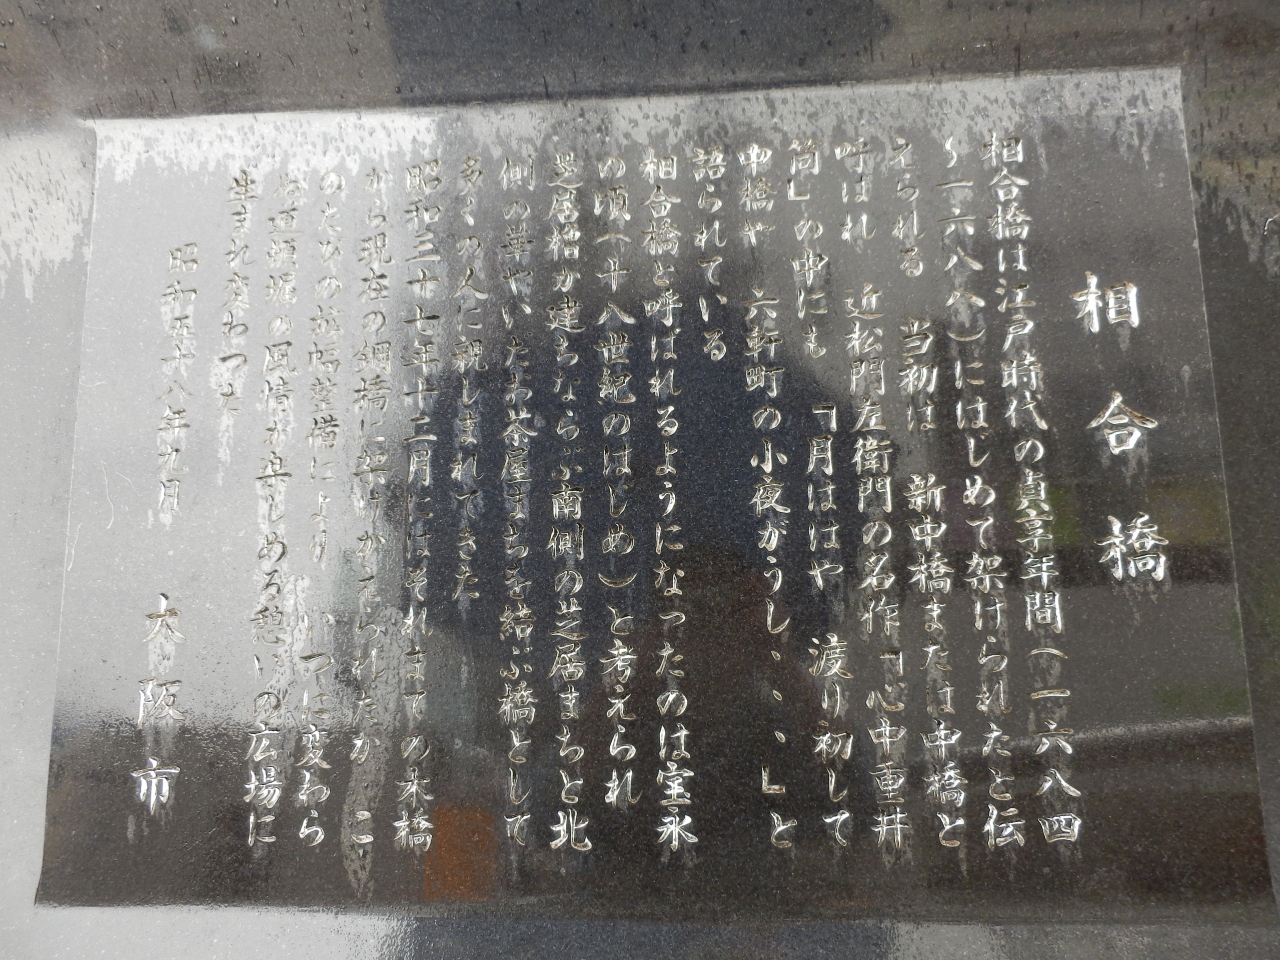 相合橋
相合橋は江戸時代の貞享年間（一六八四
～一六八八）にはじめて架けられたと伝
えられる 当初は 新中橋または中橋と
呼ばれ 近松門左衛門の名作「心中重井
筒」の中にも 「月ははや 渡り初して
中橋や 六軒町の小夜がうし、、、」と
語られている
相合橋と呼ばれるようになったのは宝永
の頃（十八世紀のはじめ）と考えられ
芝居櫓が建ちならぶ南側の芝居まちと北
側の華やいたお茶屋まちを結ぶ橋として
多くの人に親しまれてきた
昭和三十七年十二月にはそれまでの木橋
から現在の鋼橋に架けかえられたが こ
のたびの拡幅整備により いつに変わら
ぬ道頓堀の風情が楽しめる憩いの広場に
生まれ変わった
昭和五十八年九月 大阪市